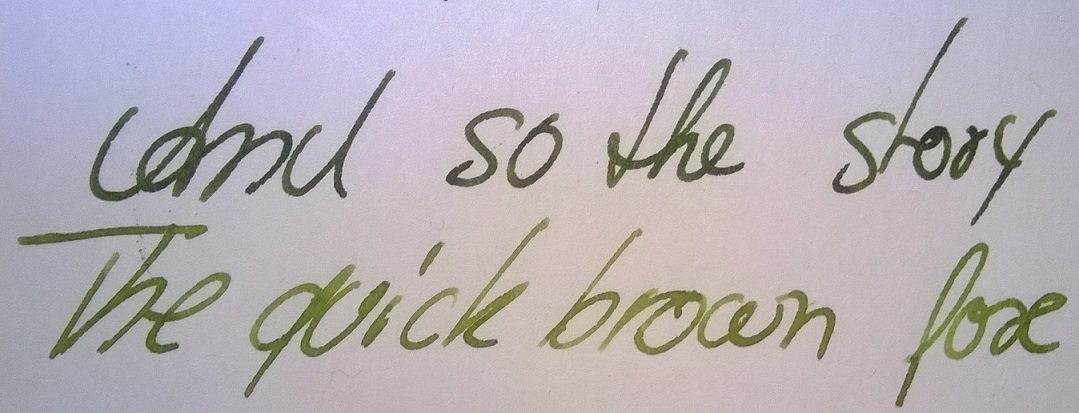 And so the story
The quick brown fox